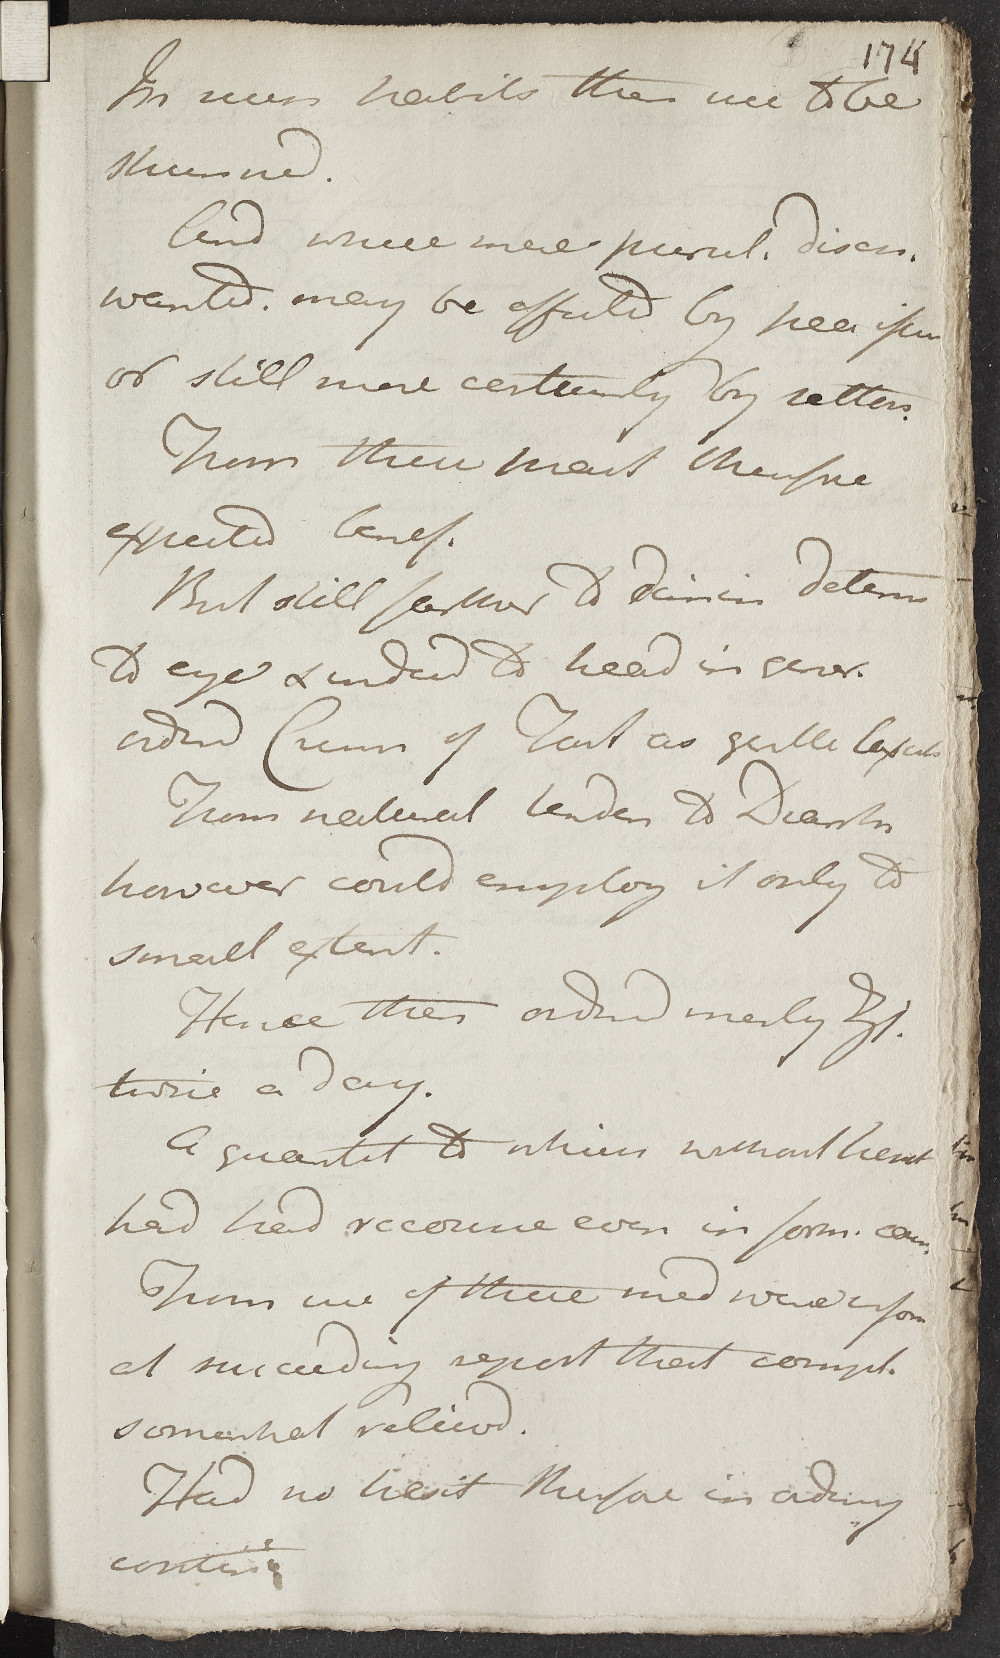 174
In such habits then are to be
shunned.
And where mere purul. disch.
wanted. may be effected by pea issu
or still more certainly by setton.
From these meas therefore
expected benef.
But still farther to dimin determ
to eye & indeed to head in gener.
ordrd Cremr of Tart as gentle laxat
From natural tenden to Diarrh
however could employ it only to
small extent.
Hence then ordrd merely ʒj.
twice a day.
A quantit to which without hesit
had had recourse even in form. cas.
From use of these med were inform
at succeeding report that compl.
somewhat relievd.
Had no hesit therefore in ordring
contin